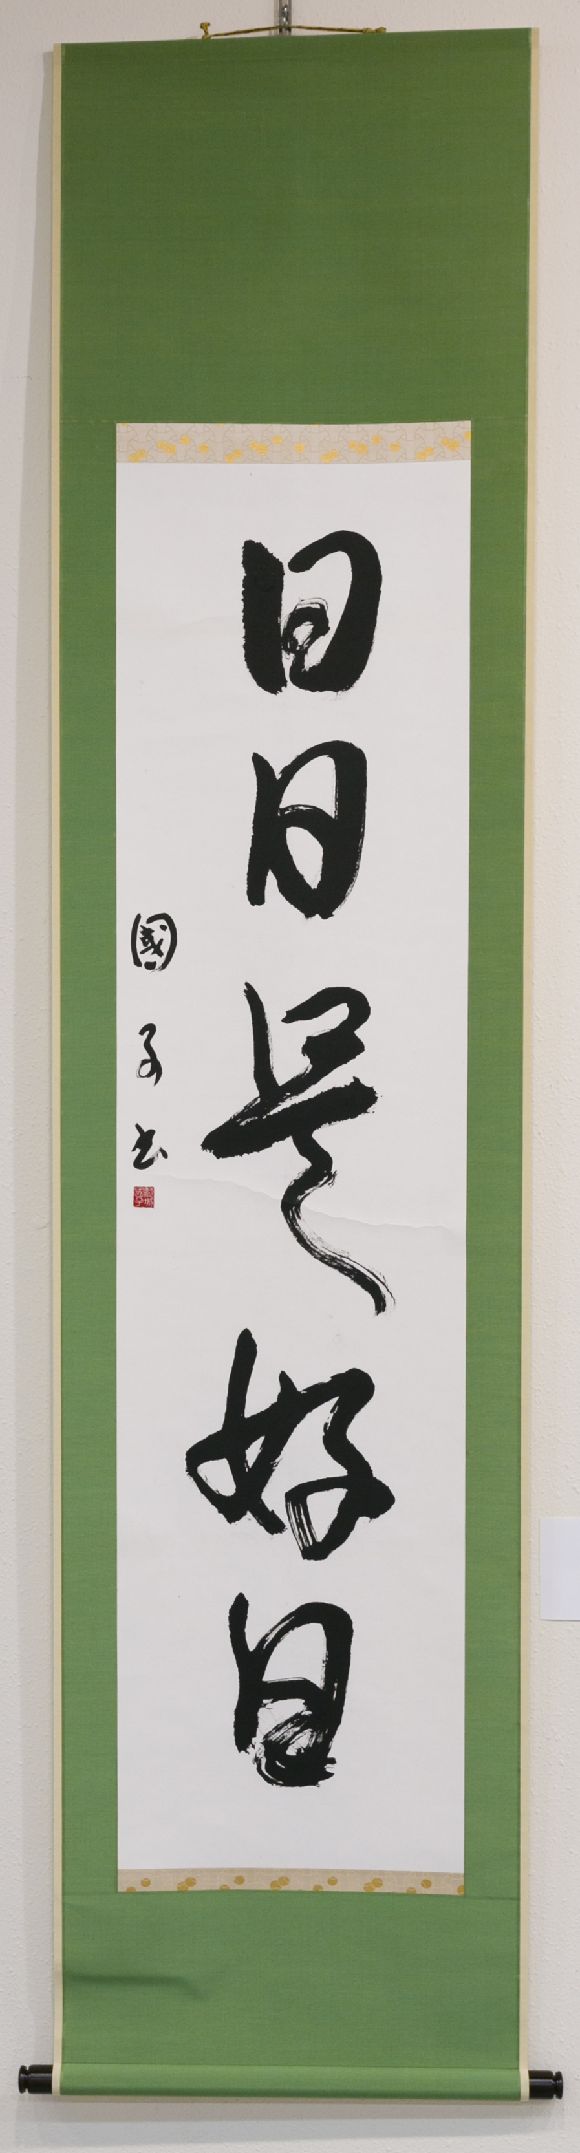 日日是好日
國子书